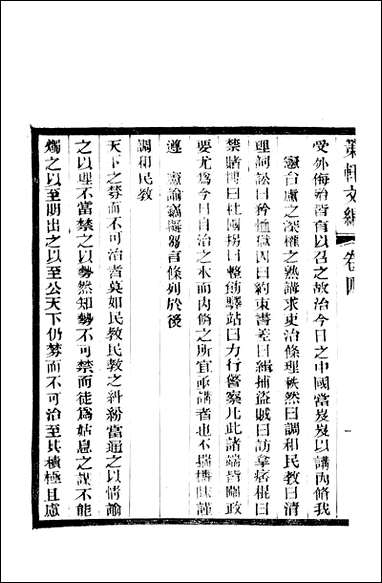 策軒文編 卷四 一
受外侮治皆有以召之故治今日之中國當岌岌以講內脩我
憲台慮之深權之熟講求吏治條理秩然曰調和民教曰清
理詞訟曰矜恤獄囚曰約束書差曰緝捕盜賊曰訪拿痞棍曰
禁賭博曰杜國拐曰整飭驛站曰力行警察凡此諸端皆關政
要尤為今日自治之本而內脩之所宜亟講者也不揣檮昧謹
遵 憲諭竊擬芻言條列於後
調和民教
天下之棼而不可治者莫如民教民教之糾紛當通之以情諭
之以理不當禁之以勢然知勢不可禁而徒為姑息之謀不能
燭之以至明出之以至公天下仍棼而不可治至其積極且慮